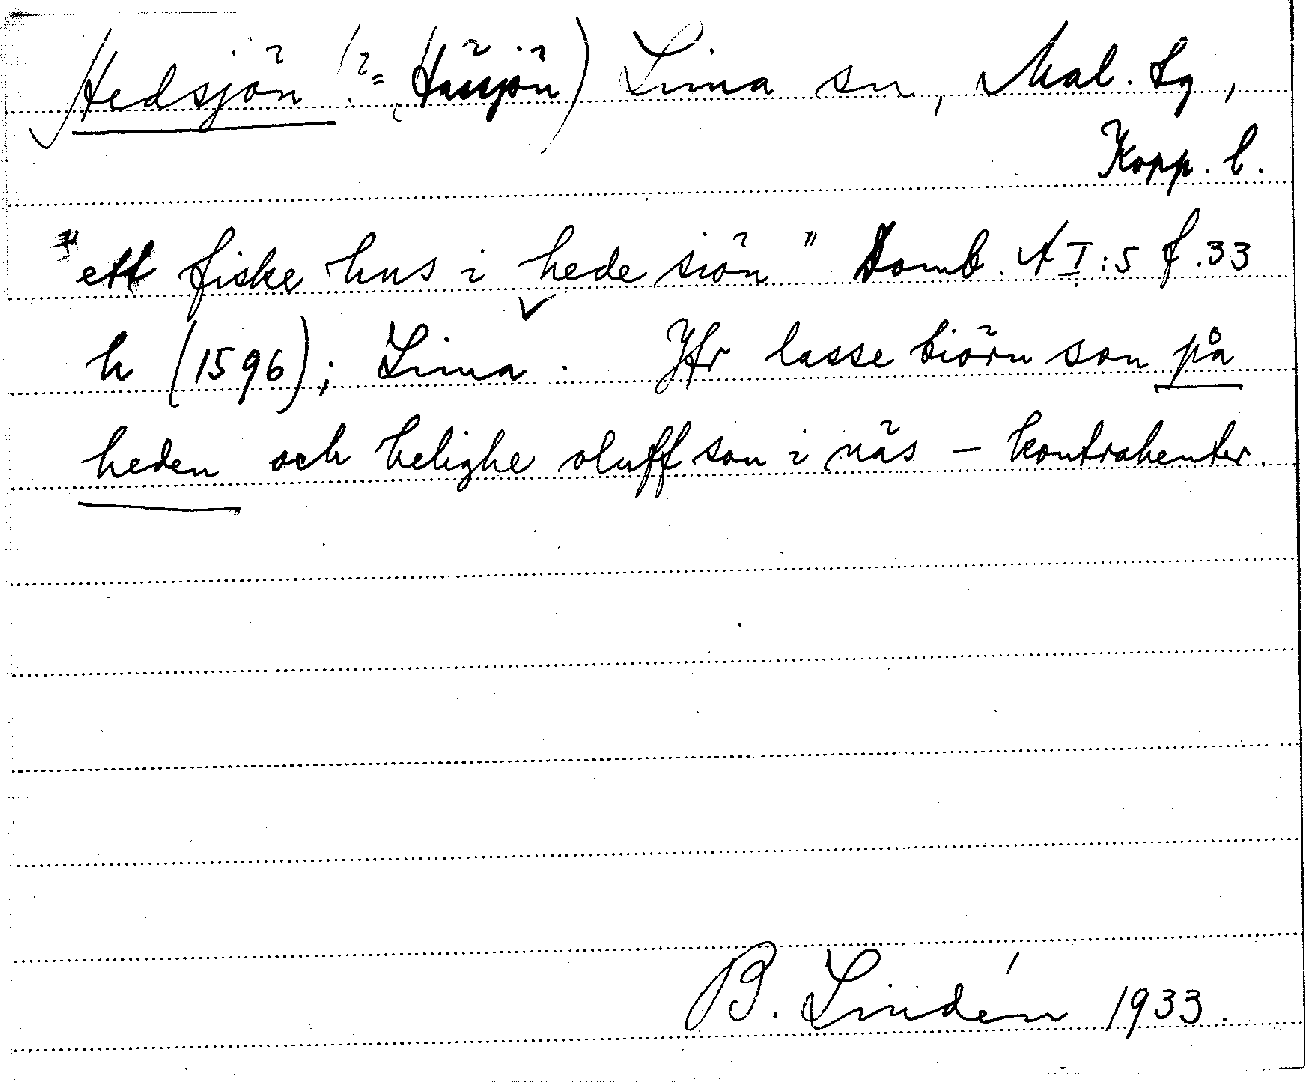 Hedsjön (?= Hässjön) Lima sn, Mal. tg,
Kopp. l.
"ett fiske hus i hede siön" Domb. A I:5 f. 33
h (1596); Lima. Jfr lasse biörn son på
heden och helighe oluff son i näs – kontrahenter.
B. Lindén 1933.